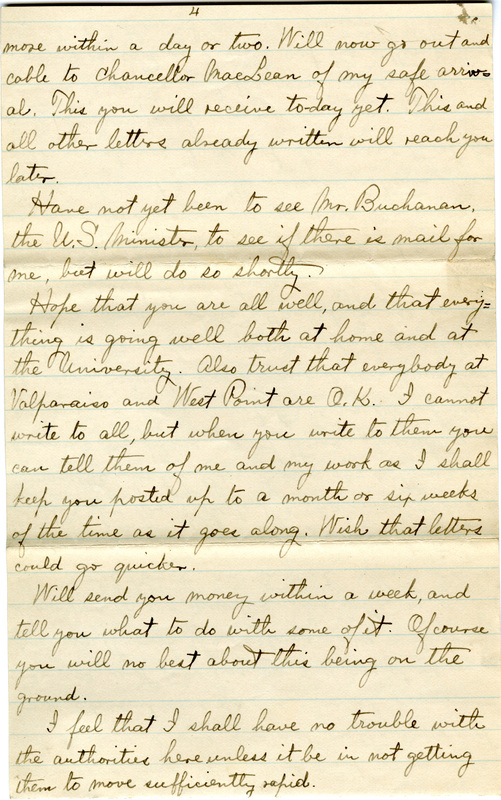 4
more within a day or two. Will now go out and
cable to Chancellor MacLean of my safe arriv-
al. This you will receive today yet. This and
all other letters already written will reach you
later.
Have not yet been to see Mr. Buchanan,
the U.S. Minister, to see if there is mail for
me, but will do so shortly.
Hope that you are all well, and that every=
thing is going well both at home and at
the University. Also trust that everybody at
Valparaiso and West Point are O.K. I cannot
write to all, but when you write to them you
can tell them of me and my work as I shall
keep you posted up to a month or six weeks
of the time as it goes along. Wish that letters
could go quicker.
Will send you money within a week, and
tell you what to do with some of it. Of course
you will no best about this being on the
ground.
I feel that I shall have no trouble with
the authorities here unless it be in not getting
them to move sufficiently rapid.